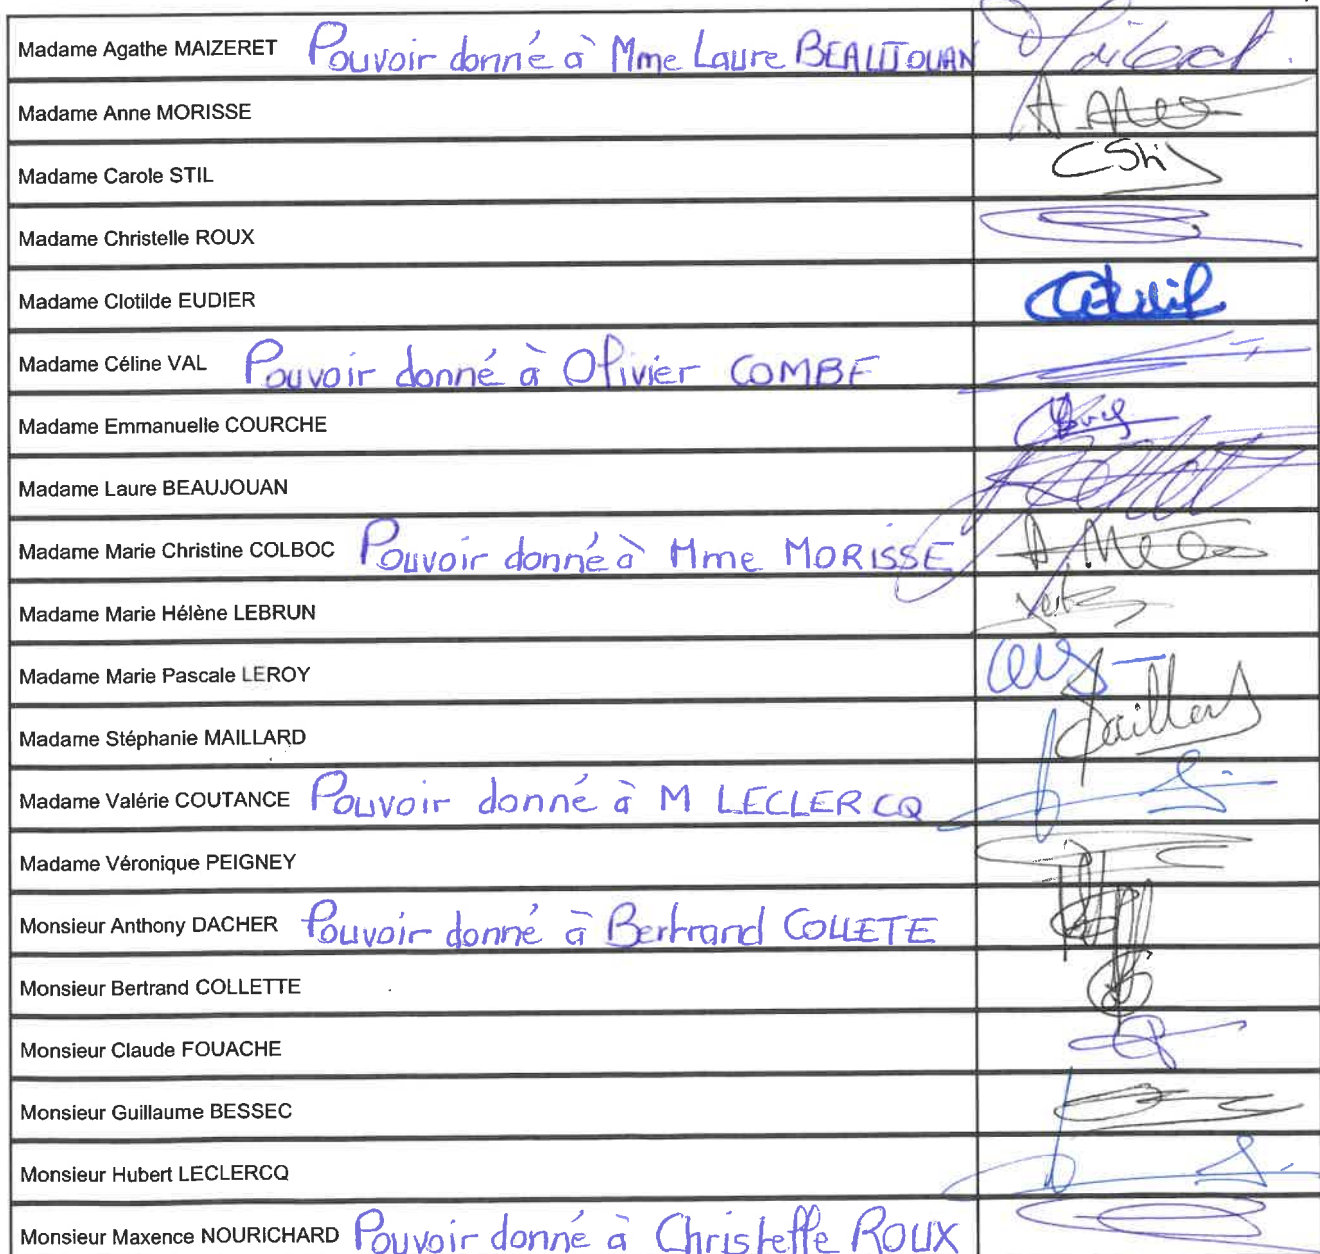 Madame Agathe MAIZERET Pouvoir donné à Mme Laure BEAUJOUAN
Madame Anne MORISSE
Madame Carole STIL
Madame Christelle ROUX
Madame Clotilde EUDIER
Madame Céline VAL Pouvoir donné à Olivier COMBE
Madame Emmanuelle COURCHE
Madame Laure BEAUJOUAN
Madame Marie Christine COLBOC Pouvoir donné à Mme MORISSE
Madame Marie Hélène LEBRUN
Madame Marie Pascale LEROY
Madame Stéphanie MAILLARD
Madame Valérie COUTANCE Pouvoir donné à M LECLERCQ
Madame Véronique PEIGNEY
Monsieur Anthony DACHER Pouvoir donné à Bertrand COLLETE
Monsieur Bertrand COLLETTE
Monsieur Claude FOUACHE
Monsieur Guillaume BESSEC
Monsieur Hubert LECLERCQ
Monsieur Maxence NOURICHARD Pouvoir donné à Christelle ROUX